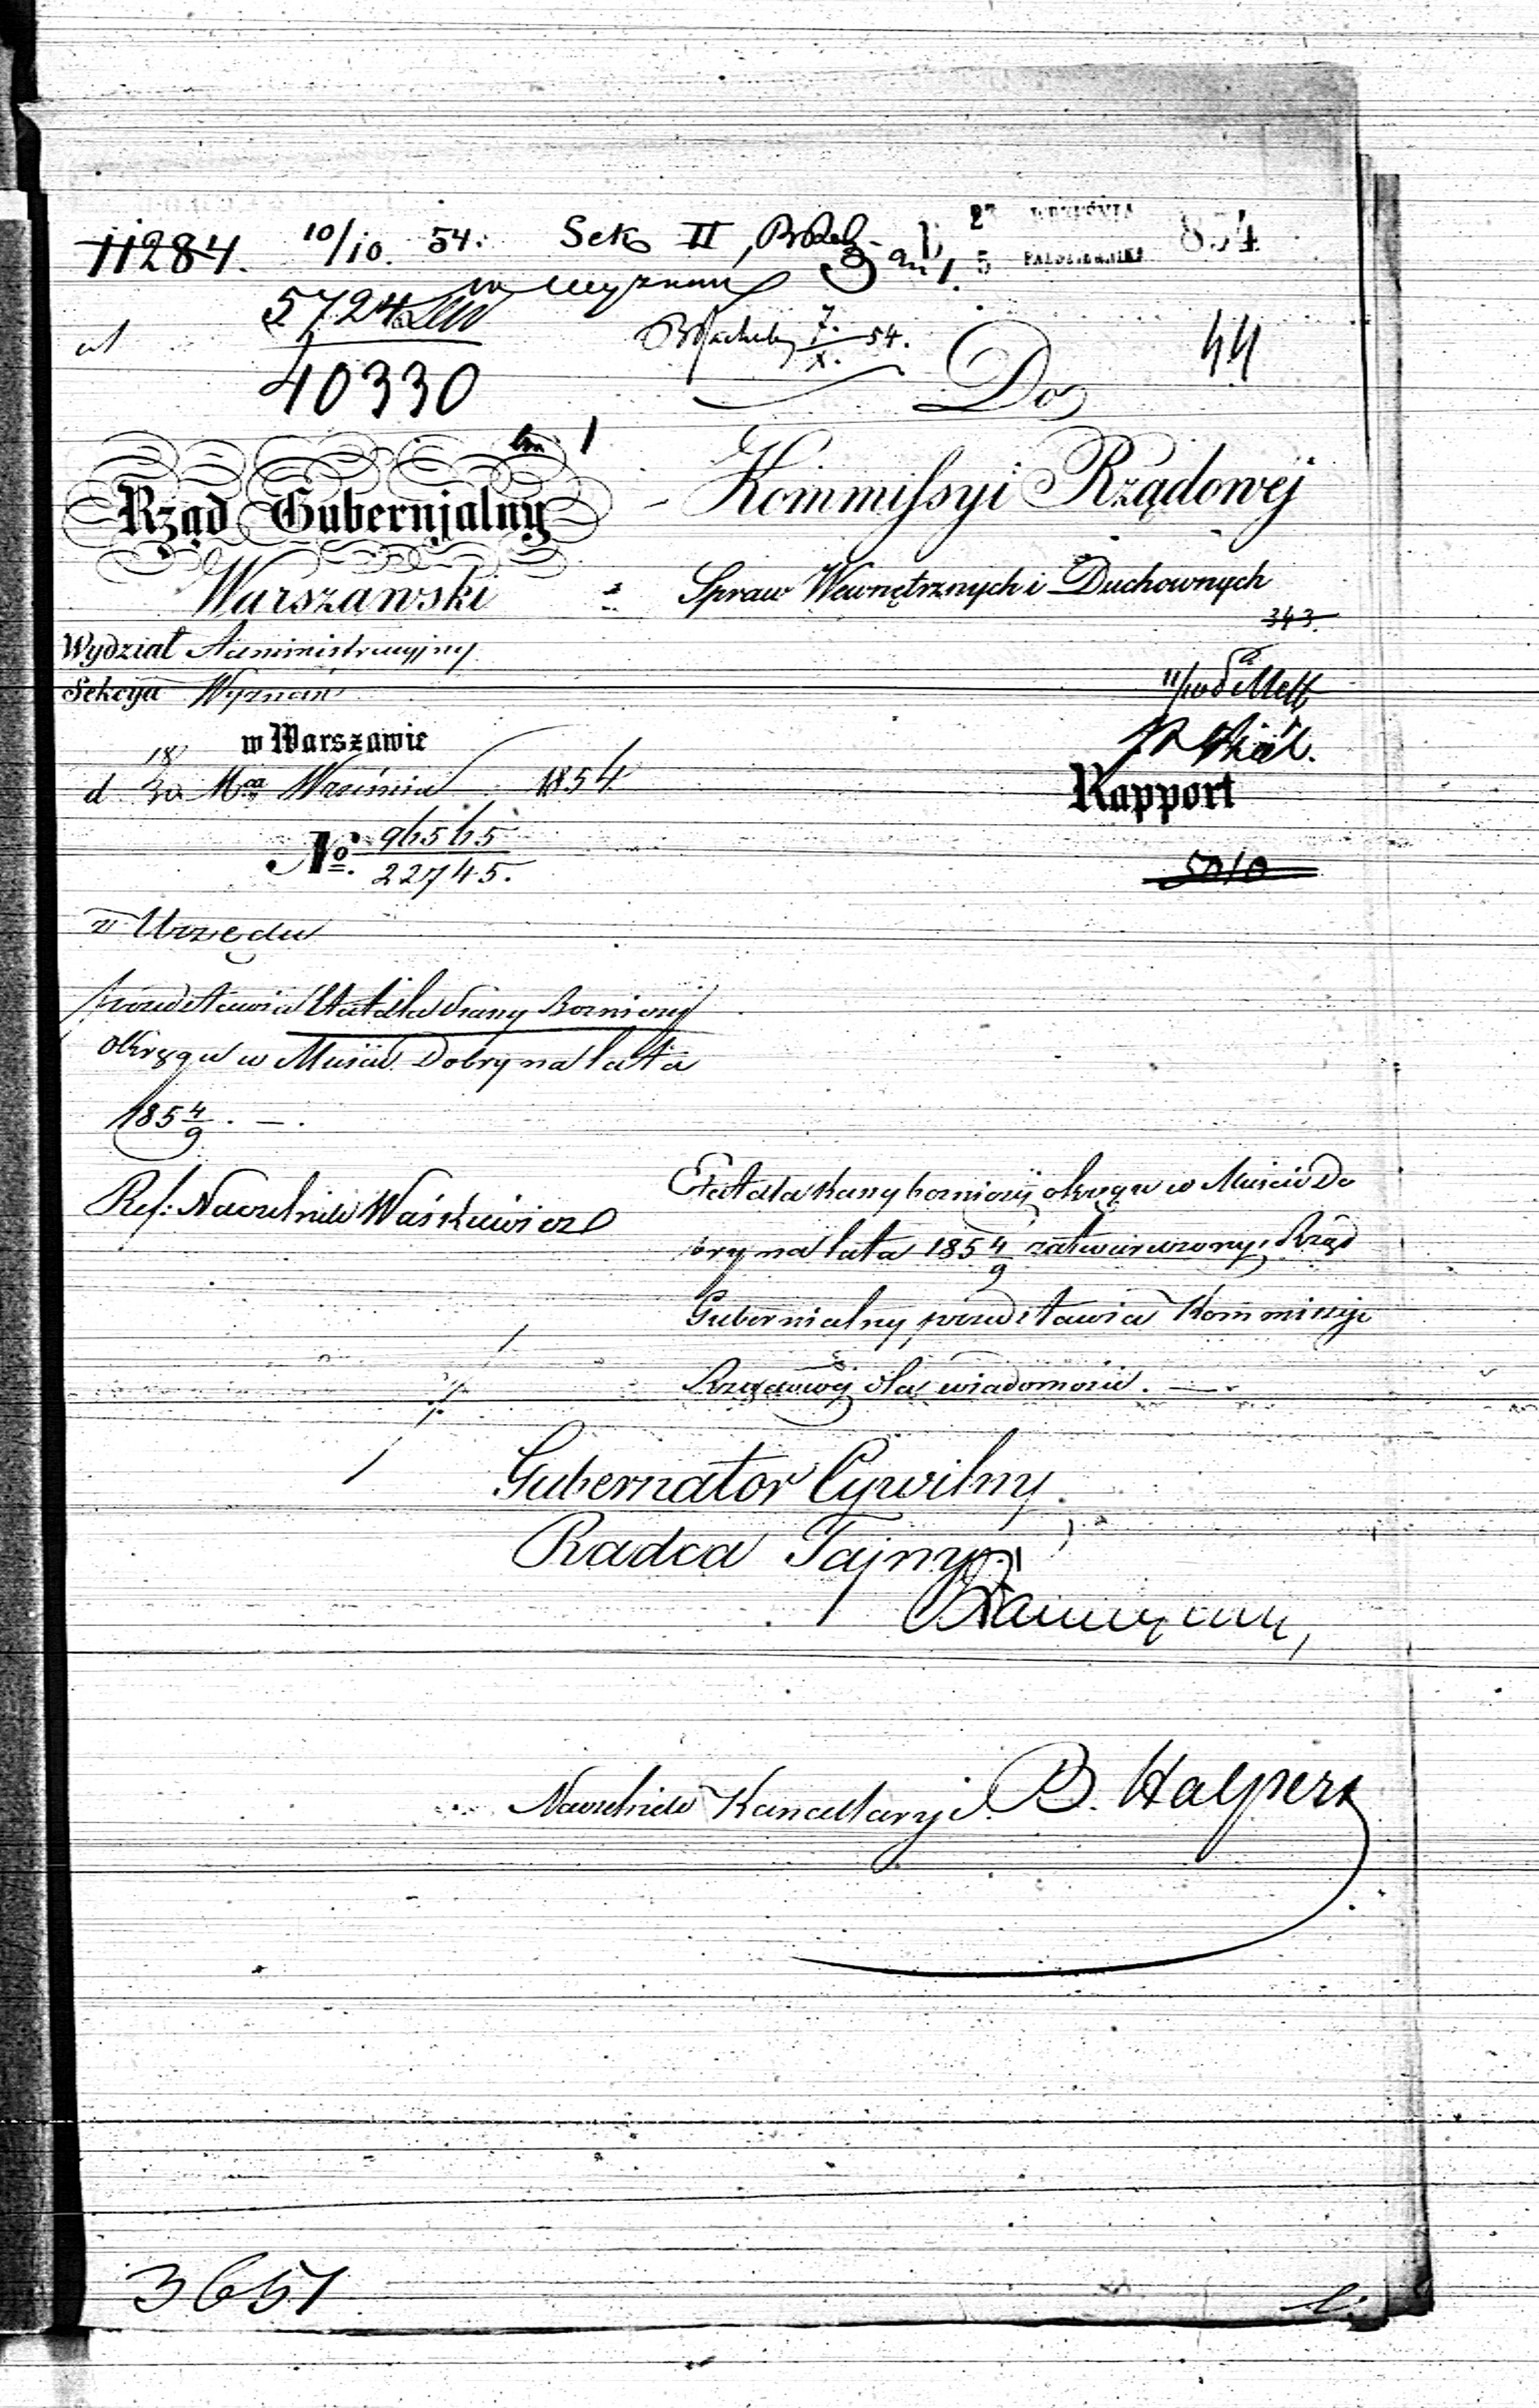 11284. 10/10. 54. Sek II,
27 WRZEŚNIA
5 PAŹDZIERNIKA 854
5724
40330
7/X. 54.
44
Do
Rząd Gubernjalny
Kommissyi Rządowéj
Warszawski
Spraw Wewnętrznych i Duchownych
343.
Wydział Administracyjny
Sekcya Wyznań
w Warszawie
d 18/30 Mca Września 1854
Rapport
No. 96565/22745.
5010
z Urzędu
przedstawia Etat dla Kassy Bożniczej
Okręgu w Mieście Dobry na lata
1854/9. —.
Ref: Naczelnik Waśkiewicz
Etat dla Kassy bożniczéj okręgu w Mieście Do
bry na lata 1854/9 zatwierdzony, Rząd
Gubernialny przedstawia Kommissyi
Rządowéj dla wiadomości. —.
Gubernator Cywilny
Radca Tajny
Naczelnik Kancellaryi B. Halpert
3651